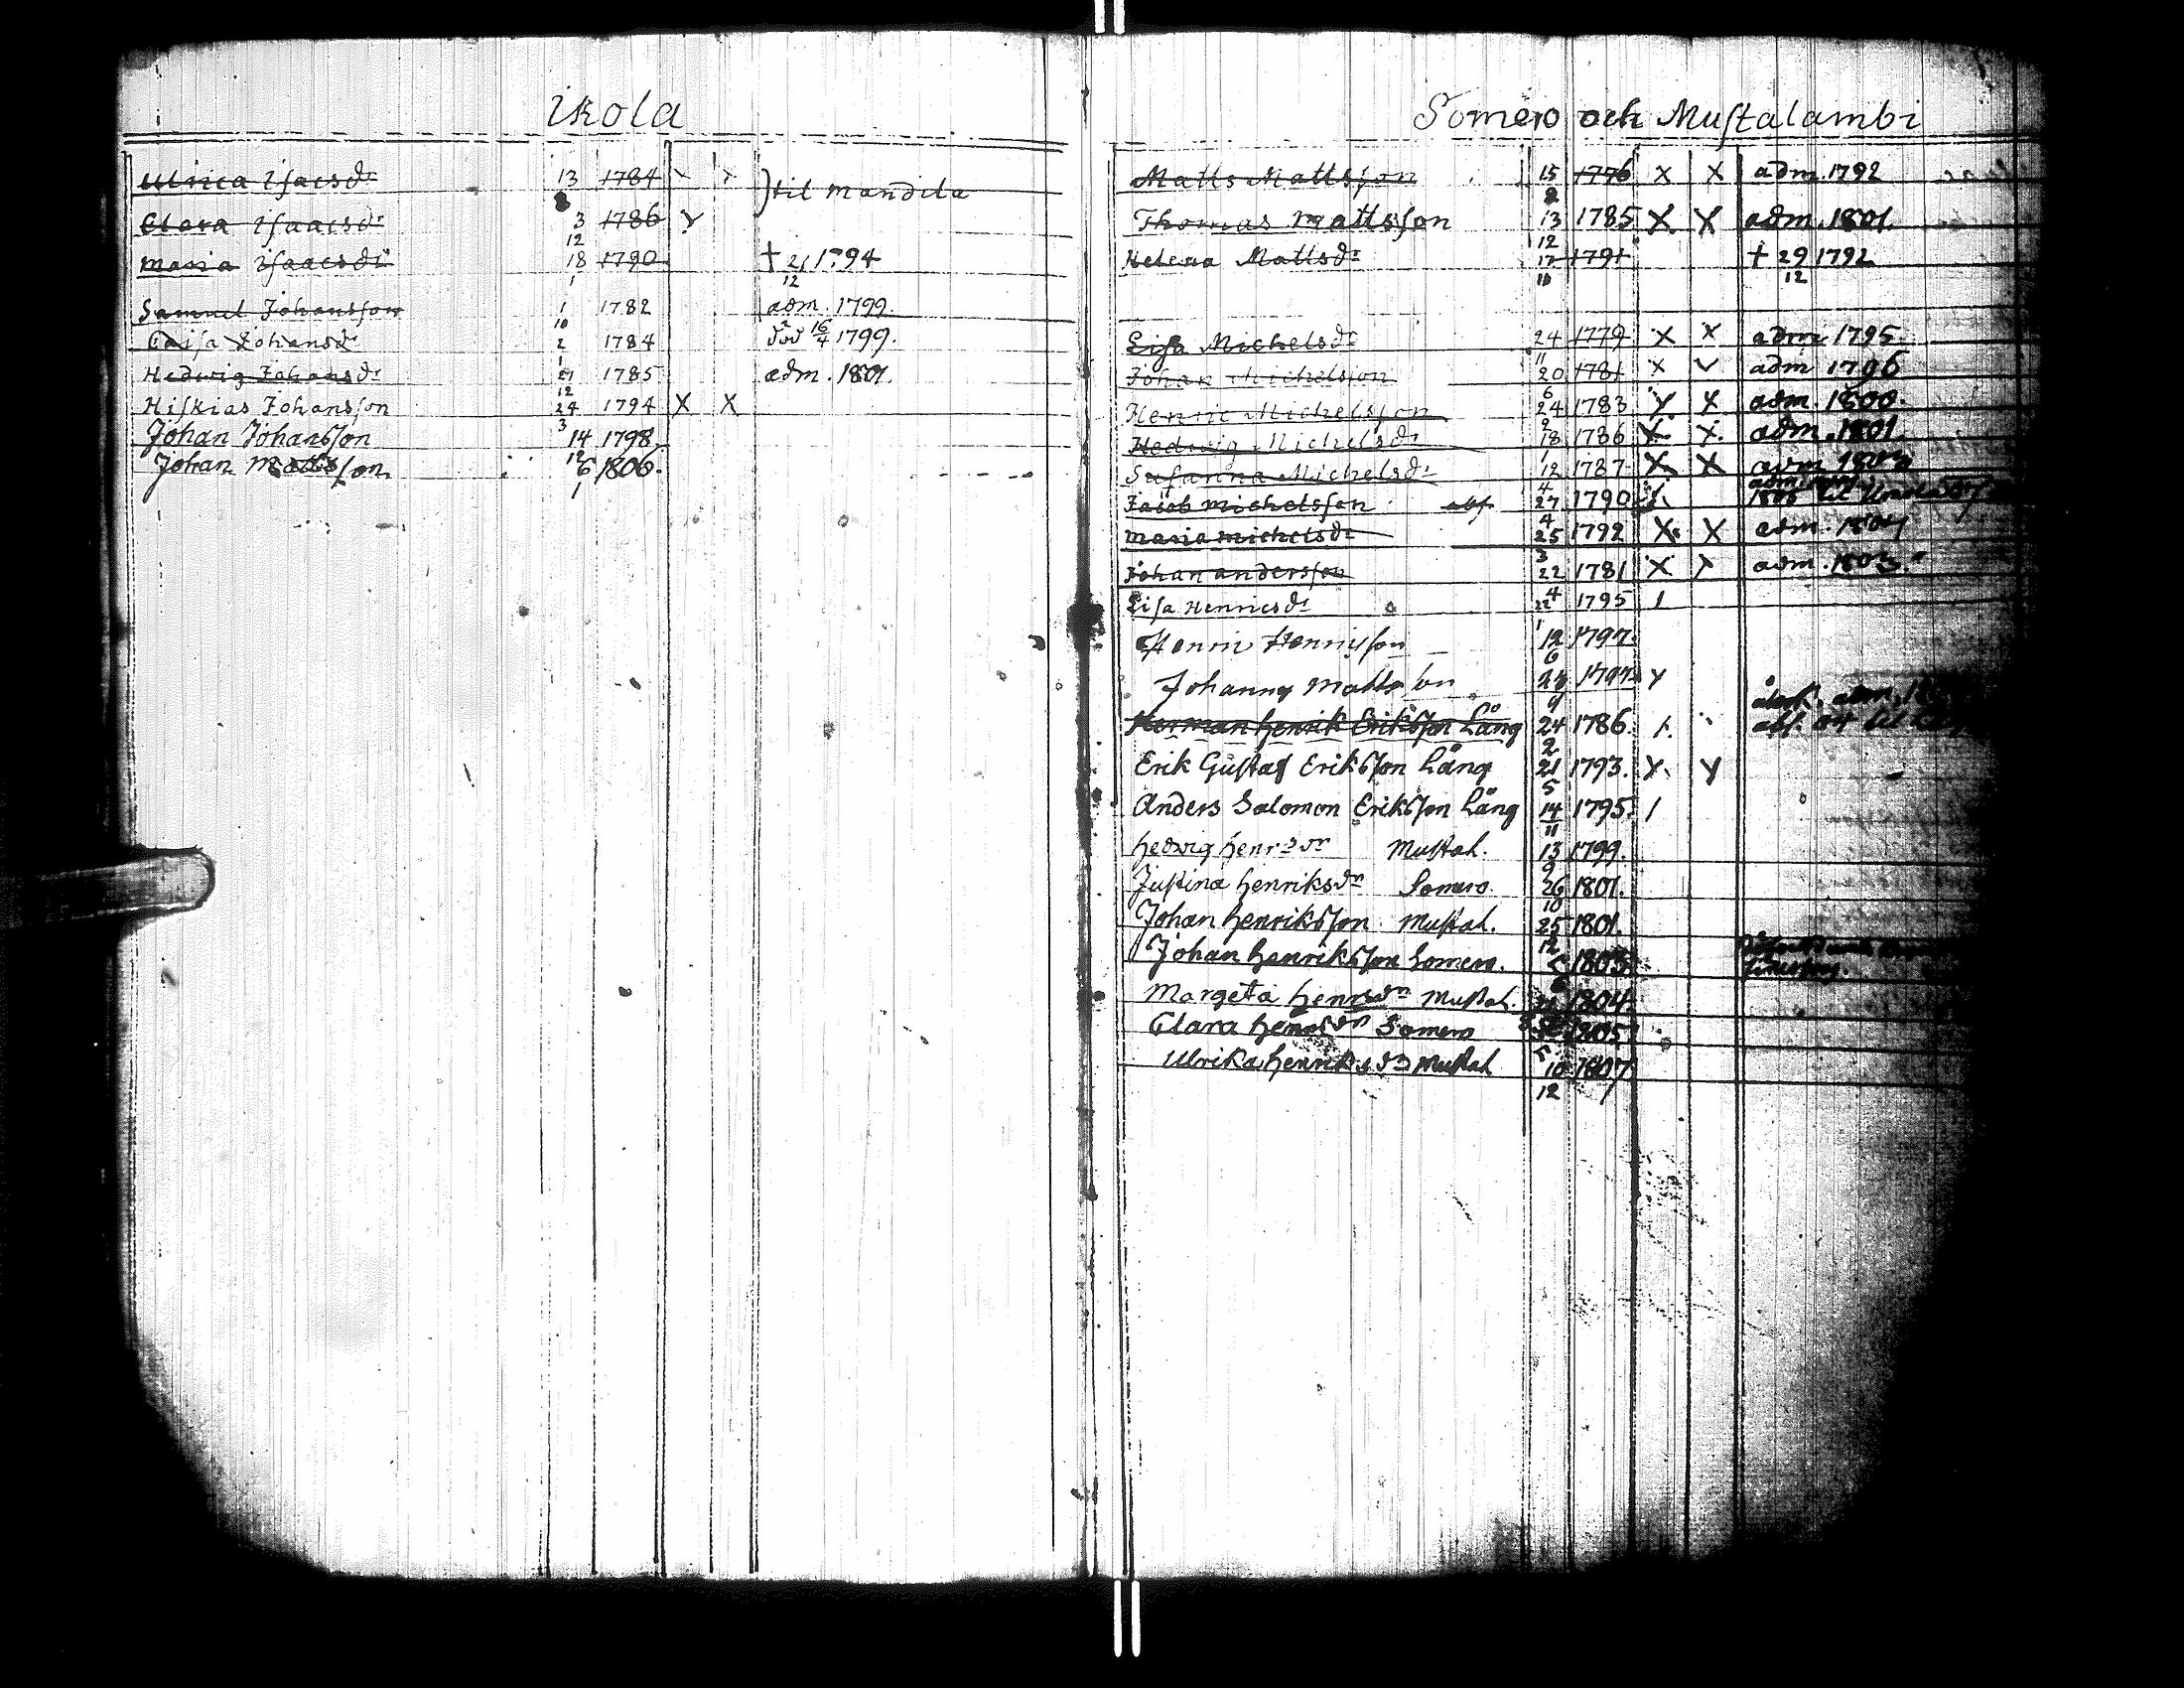 Ikola
Ulrica Isacsdr 13 1784 } til Mandila
8
Clara Isaacsdr 3 1786 y
12
Maria Isaacsdr 18 1790 † 21 1794
1 12
Samuel Johansson 1 1782 adm. 1799.
10
Caisa Johansdr 2 1784 död 16/4 1799.
1
Hedwig Johansdr 21 1785 adm. 1801.
12
Hiskias Johansson 24 1794 X X
3
Johan Johansson 14 1798.
12
Johan Mattsson 6 1806.
1
Somero och Mustalambi
Matts Mattsson 15 1776 X X adm. 1792
Thomas Mattsson 13 1785 X X adm. 1801.
12
Helena Mattsdr 17 1791 † 29 1792
10 12
Lisa Michelsdr 24 1779 X X adm. 1795.
11
Johan Michelsson 20 1781 X adm 1796
6
Henric Michelsson 24 1783 adm. 1800.
2
Hedwig Michelsdr 18 1786 X. X. adm. 1801.
1
Susanna Michelsdr 12 1787 X X adm
4
Jacob Michelsson abf. 27 1790
4
Maria Michelsdr 25 1792 X X adm. 1804
3
Johan Andersson 22 1781 X adm. 1803.
4
Lisa Henricsdr 22 1795 /
1
Henric Henricsson 12 1797.
6
Johannes Mattsson 1797.
9
Herman Henrik Eriksson Lång 24 1786. abf. til
2
Erik Gustaf Eriksson Lång 21 1793. y. y
5
Anders Salomon Eriksson Lång 14 1795. /
11
Hedvig Henrsdr Mustal. 13 1799.
9
Justina Henriksdr Somero. 26 1801.
10
Johan Henriksson Mustal. 25 1801.
12
Johan Henriksson Somero. 5 1803.
6
Margeta Henrsdr Mustal. 1804.
Clara Henrsdr Somero 1805
Ulrika Henriksdr Mustal 10 1807
12